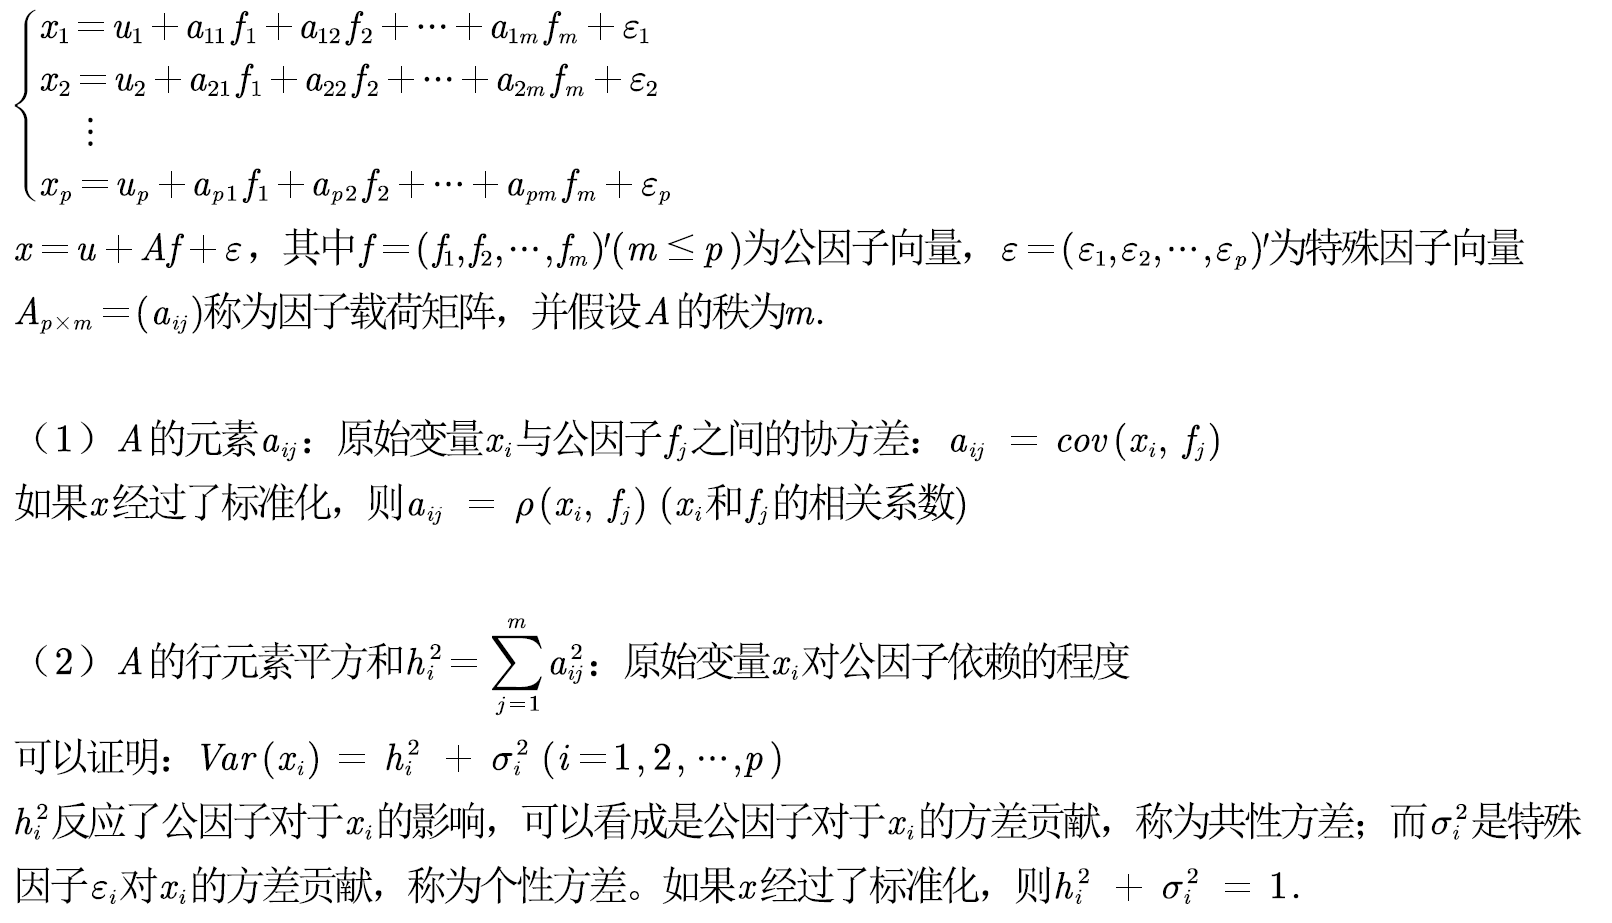 x₁ = u₁ + a₁₁f₁ + a₁₂f₂ + ⋯ + a₁ₘfₘ + ε₁
x₂ = u₂ + a₂₁f₁ + a₂₂f₂ + ⋯ + a₂ₘfₘ + ε₂
⋮
xₚ = uₚ + aₚ₁f₁ + aₚ₂f₂ + ⋯ + aₚₘfₘ + εₚ
x = u + Af + ε，其中f = (f₁,f₂,⋯,fₘ)′(m ≤ p)为公因子向量，ε = (ε₁,ε₂,⋯,εₚ)′为特殊因子向量
A_{p×m} = (a_{ij})称为因子载荷矩阵，并假设A的秩为m.
（1）A的元素a_{ij}：原始变量x_i与公因子f_j之间的协方差：a_{ij} = cov(x_i, f_j)
如果x经过了标准化，则a_{ij} = ρ(x_i, f_j) (x_i和f_j的相关系数)
（2）A的行元素平方和h_i^2 = \sum_{j=1}^{m} a_{ij}^2：原始变量x_i对公因子依赖的程度
可以证明：Var(x_i) = h_i^2 + σ_i^2 (i=1,2,⋯,p)
h_i^2反应了公因子对于x_i的影响，可以看成是公因子对于x_i的方差贡献，称为共性方差；而σ_i^2是特殊
因子ε_i对x_i的方差贡献，称为个性方差。如果x经过了标准化，则h_i^2 + σ_i^2 = 1.